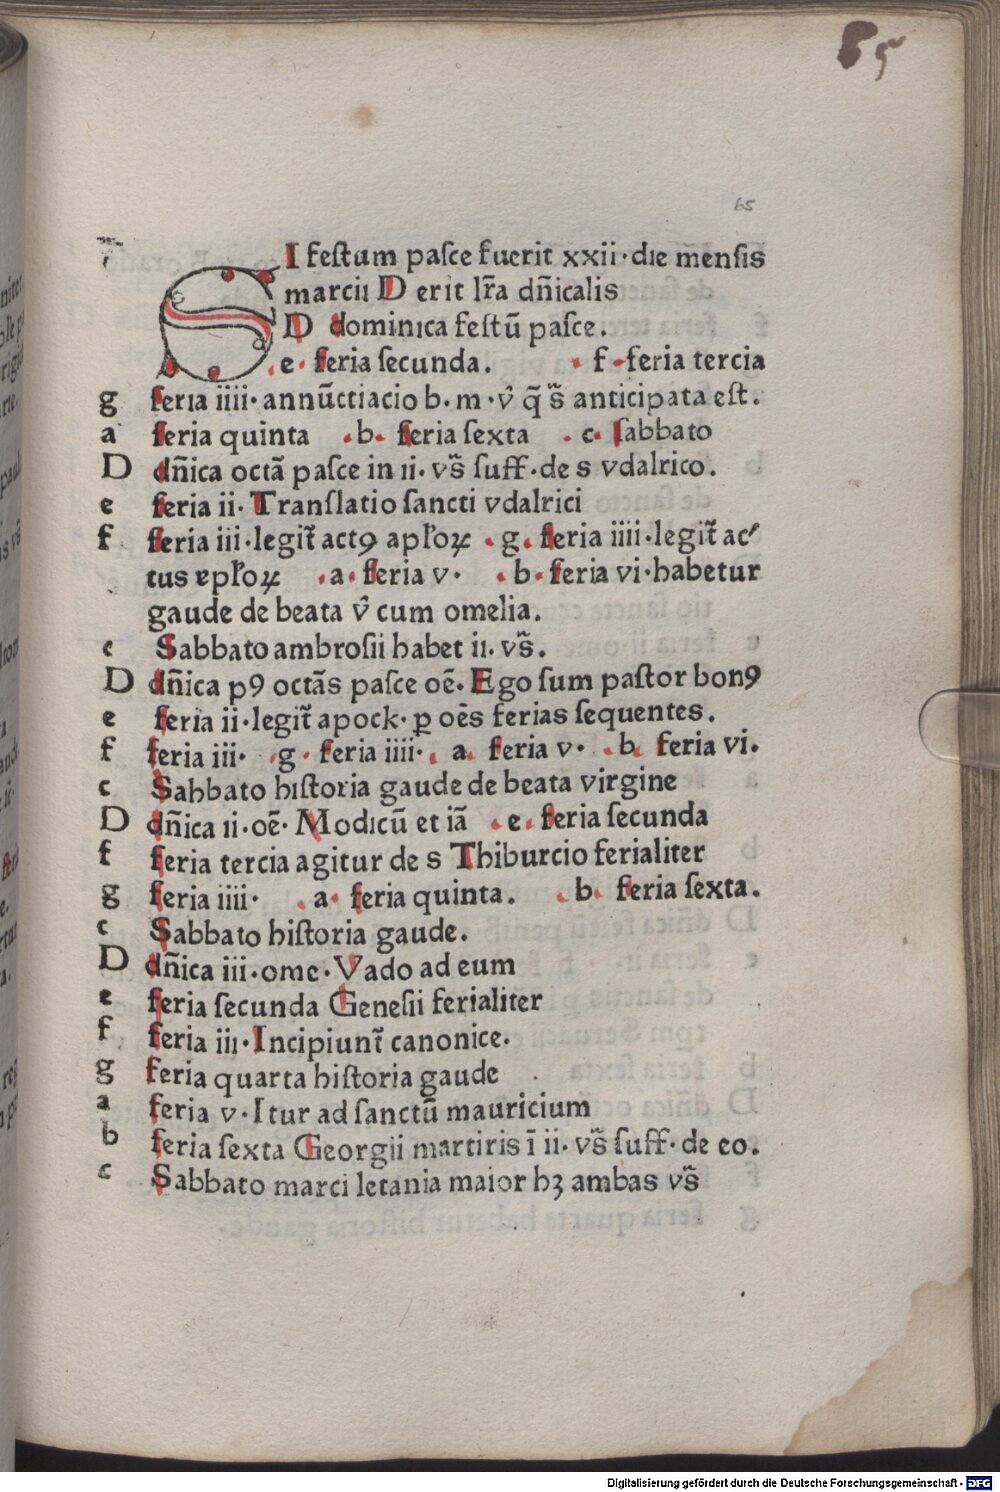 65
65
SI feſtum paſce fuerit xxii·die menſis
marcii D erit lr̃a dñicalis
D dominica feſtũ paſce.
e· feria ſecunda. · f·feria tercia
g feria iiii·annũctiacio b·m·v̑ q̃ s̃ anticipata eſt.
a feria quinta ·b· feria ſexta ·c· ſabbato
D dñica octã paſce in ii·vs̃ ſuff·de s vdalrico.
e feria ii·Tranſlatio ſancti vdalrici
f feria iii·legit̃ actꝯ apl̃oꝝ ·g· feria iiii·legit̃ ac⸗
tus epl̃oꝝ ·a· feria v· ·b·feria vi·habetur
gaude de beata v̑ cum omelia.
c Sabbato ambroſii habet ii. vs̃.
D dñica pꝯ octãs paſce oẽ·Ego ſum paſtor bonꝯ
e feria ii·legit̃ apock·ꝑ oẽs ferias ſequentes.
f feria iii· ·g· feria iiii· a. feria v· ·b. feria vi.
c Sabbato hiſtoria gaude de beata virgine
D dñica ii·oẽ·Modicũ et iã ·e·feria ſecunda
f feria tercia agitur de s Thiburcio ferialiter
g feria iiii· ·a·feria quinta. ·b· feria ſexta.
c Sabbato hiſtoria gaude.
D dñica iii·ome·Vado ad eum
e feria ſecunda Geneſii ferialiter
f feria iii·Incipiunt̃ canonice.
g feria quarta hiſtoria gaude
a feria v·Itur ad ſanctũ mauricium
b feria ſexta Georgii martiris ĩ ii·vs̃ ſuff·de eo.
c Sabbato marci letania maior hꝫ ambas vs̃
Digitalisierung gefördert durch die Deutsche Forschungsgemeinschaft - DFG